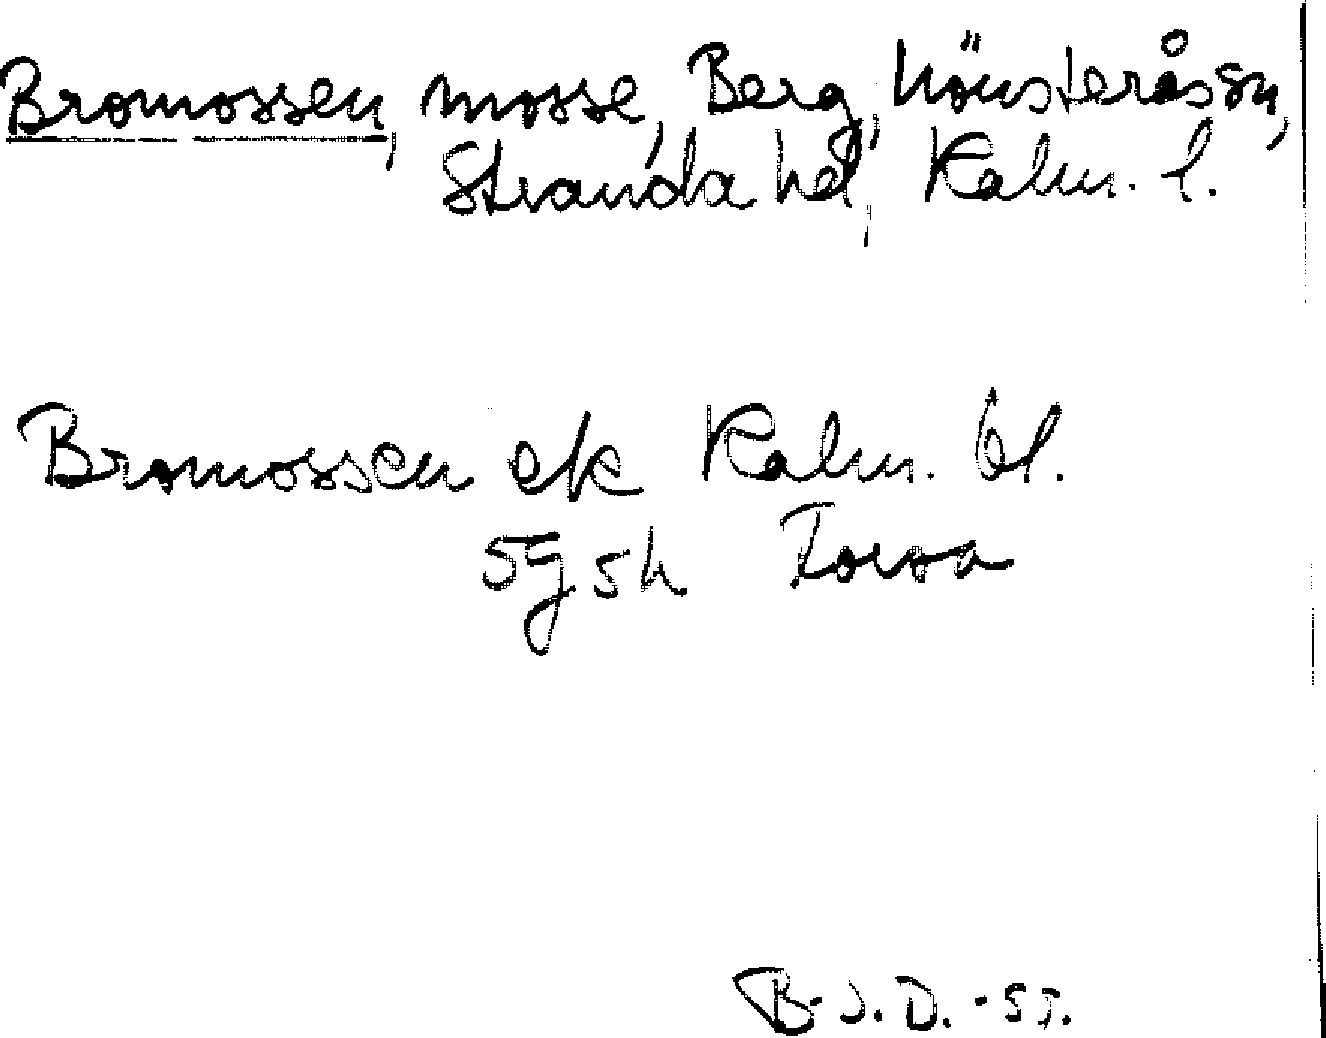 Bromossen, mosse, Berg, Mönsterås sn,
Stranda hd, Kalm. l.
Bromossen ek Kalm. bl.
5g 5h Torsa
B. J. D. -57.